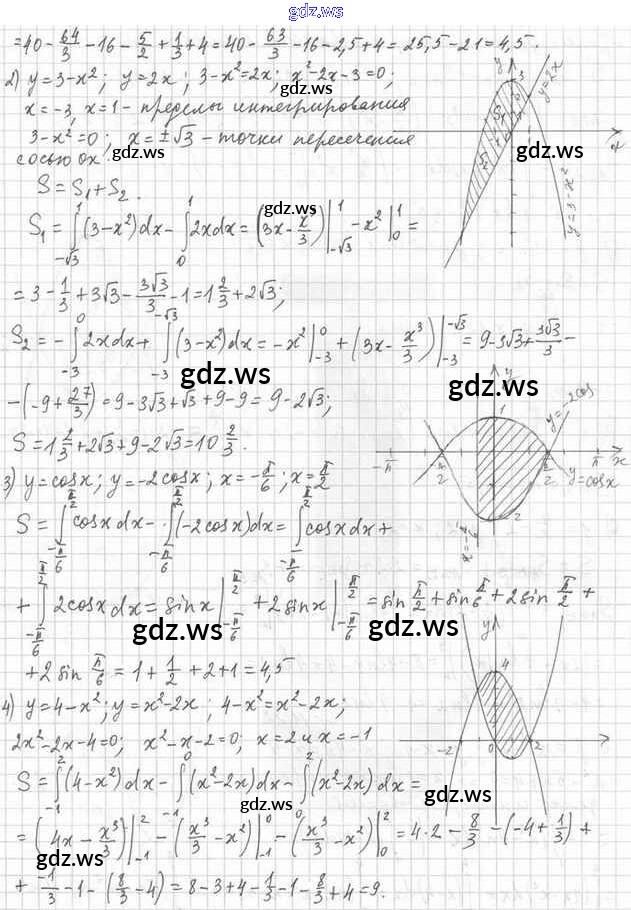 gdz.ws
=40-64/3-16-5/2+1/3+4=40-63/3-16-2,5+4=25,5-21=4,5.
2) y=3-x²; y=2x; 3-x²=2x; x²-2x-3=0;
gdz.ws
x=-3, x=1 - пределы интегрирования
3-x²=0; x=±√3 - точки пересечения
с осью ox. gdz.ws gdz.ws
S=S₁+S₂.
S₁=∫_{-√3}^{1}(3-x²)dx-∫_{0}^{1}2xdx=(3x-x³/3)|_{-√3}^{1}-x²|_{0}^{1}=
=3-1/3+3√3-3√3/3-1=1 2/3+2√3;
S₂=-∫_{-3}^{0}2xdx+∫_{-3}^{-√3}(3-x²)dx=-x²|_{-3}^{0}+(3x-x³/3)|_{-3}^{-√3}=9-3√3+3√3/3-
gdz.ws gdz.ws
-(-9+27/3)=9-3√3+√3+9-9=9-2√3;
S=1 2/3+2√3+9-2√3=10 2/3.
3) y=cosx; y=-2cosx; x=-π/6; x=π/2
S=∫_{-π/6}^{π/2}cosxdx-∫_{-π/6}^{π/2}(-2cosx)dx=∫_{-π/6}^{π/2}cosxdx+
+∫_{-π/6}^{π/2}2cosxdx=sinx|_{-π/6}^{π/2}+2sinx|_{-π/6}^{π/2}=sin π/2+sin π/6+2sin π/2+
gdz.ws gdz.ws
+2sin π/6=1+1/2+2+1=4,5
4) y=4-x²; y=x²-2x; 4-x²=x²-2x;
2x²-2x-4=0; x²-x-2=0; x=2 и x=-1
S=∫_{-1}^{2}(4-x²)dx-∫_{-1}^{0}(x²-2x)dx-∫_{0}^{2}(x²-2x)dx=
gdz.ws gdz.ws
=(4x-x³/3)|_{-1}^{2}-(x³/3-x²)|_{-1}^{0}-(x³/3-x²)|_{0}^{2}=4·2-8/3-(-4+1/3)+
gdz.ws gdz.ws
+-1/3-1-(8/3-4)=8-3+4-1/3-1-8/3+4=9.
y
3
y=2x
S₁
S₂
x
y=3-x²
y
1
y=-2cos
-π
π/2
π
x
y=cosx
-2
y
4
-2
0
2